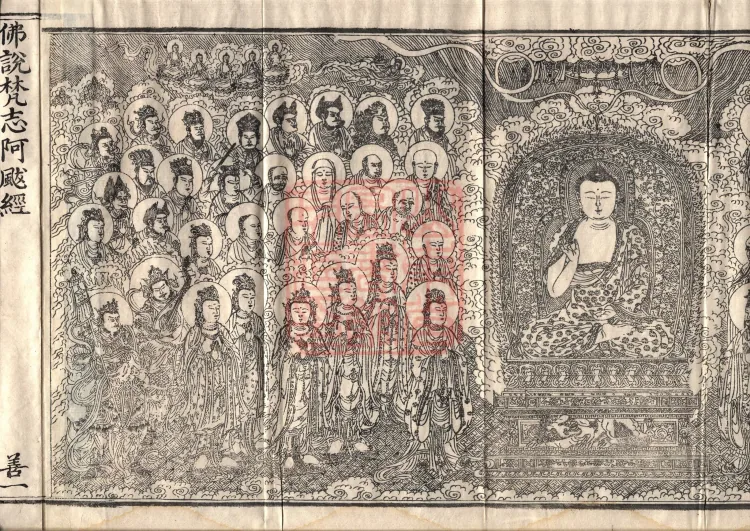 佛說梵志阿颰經
善一